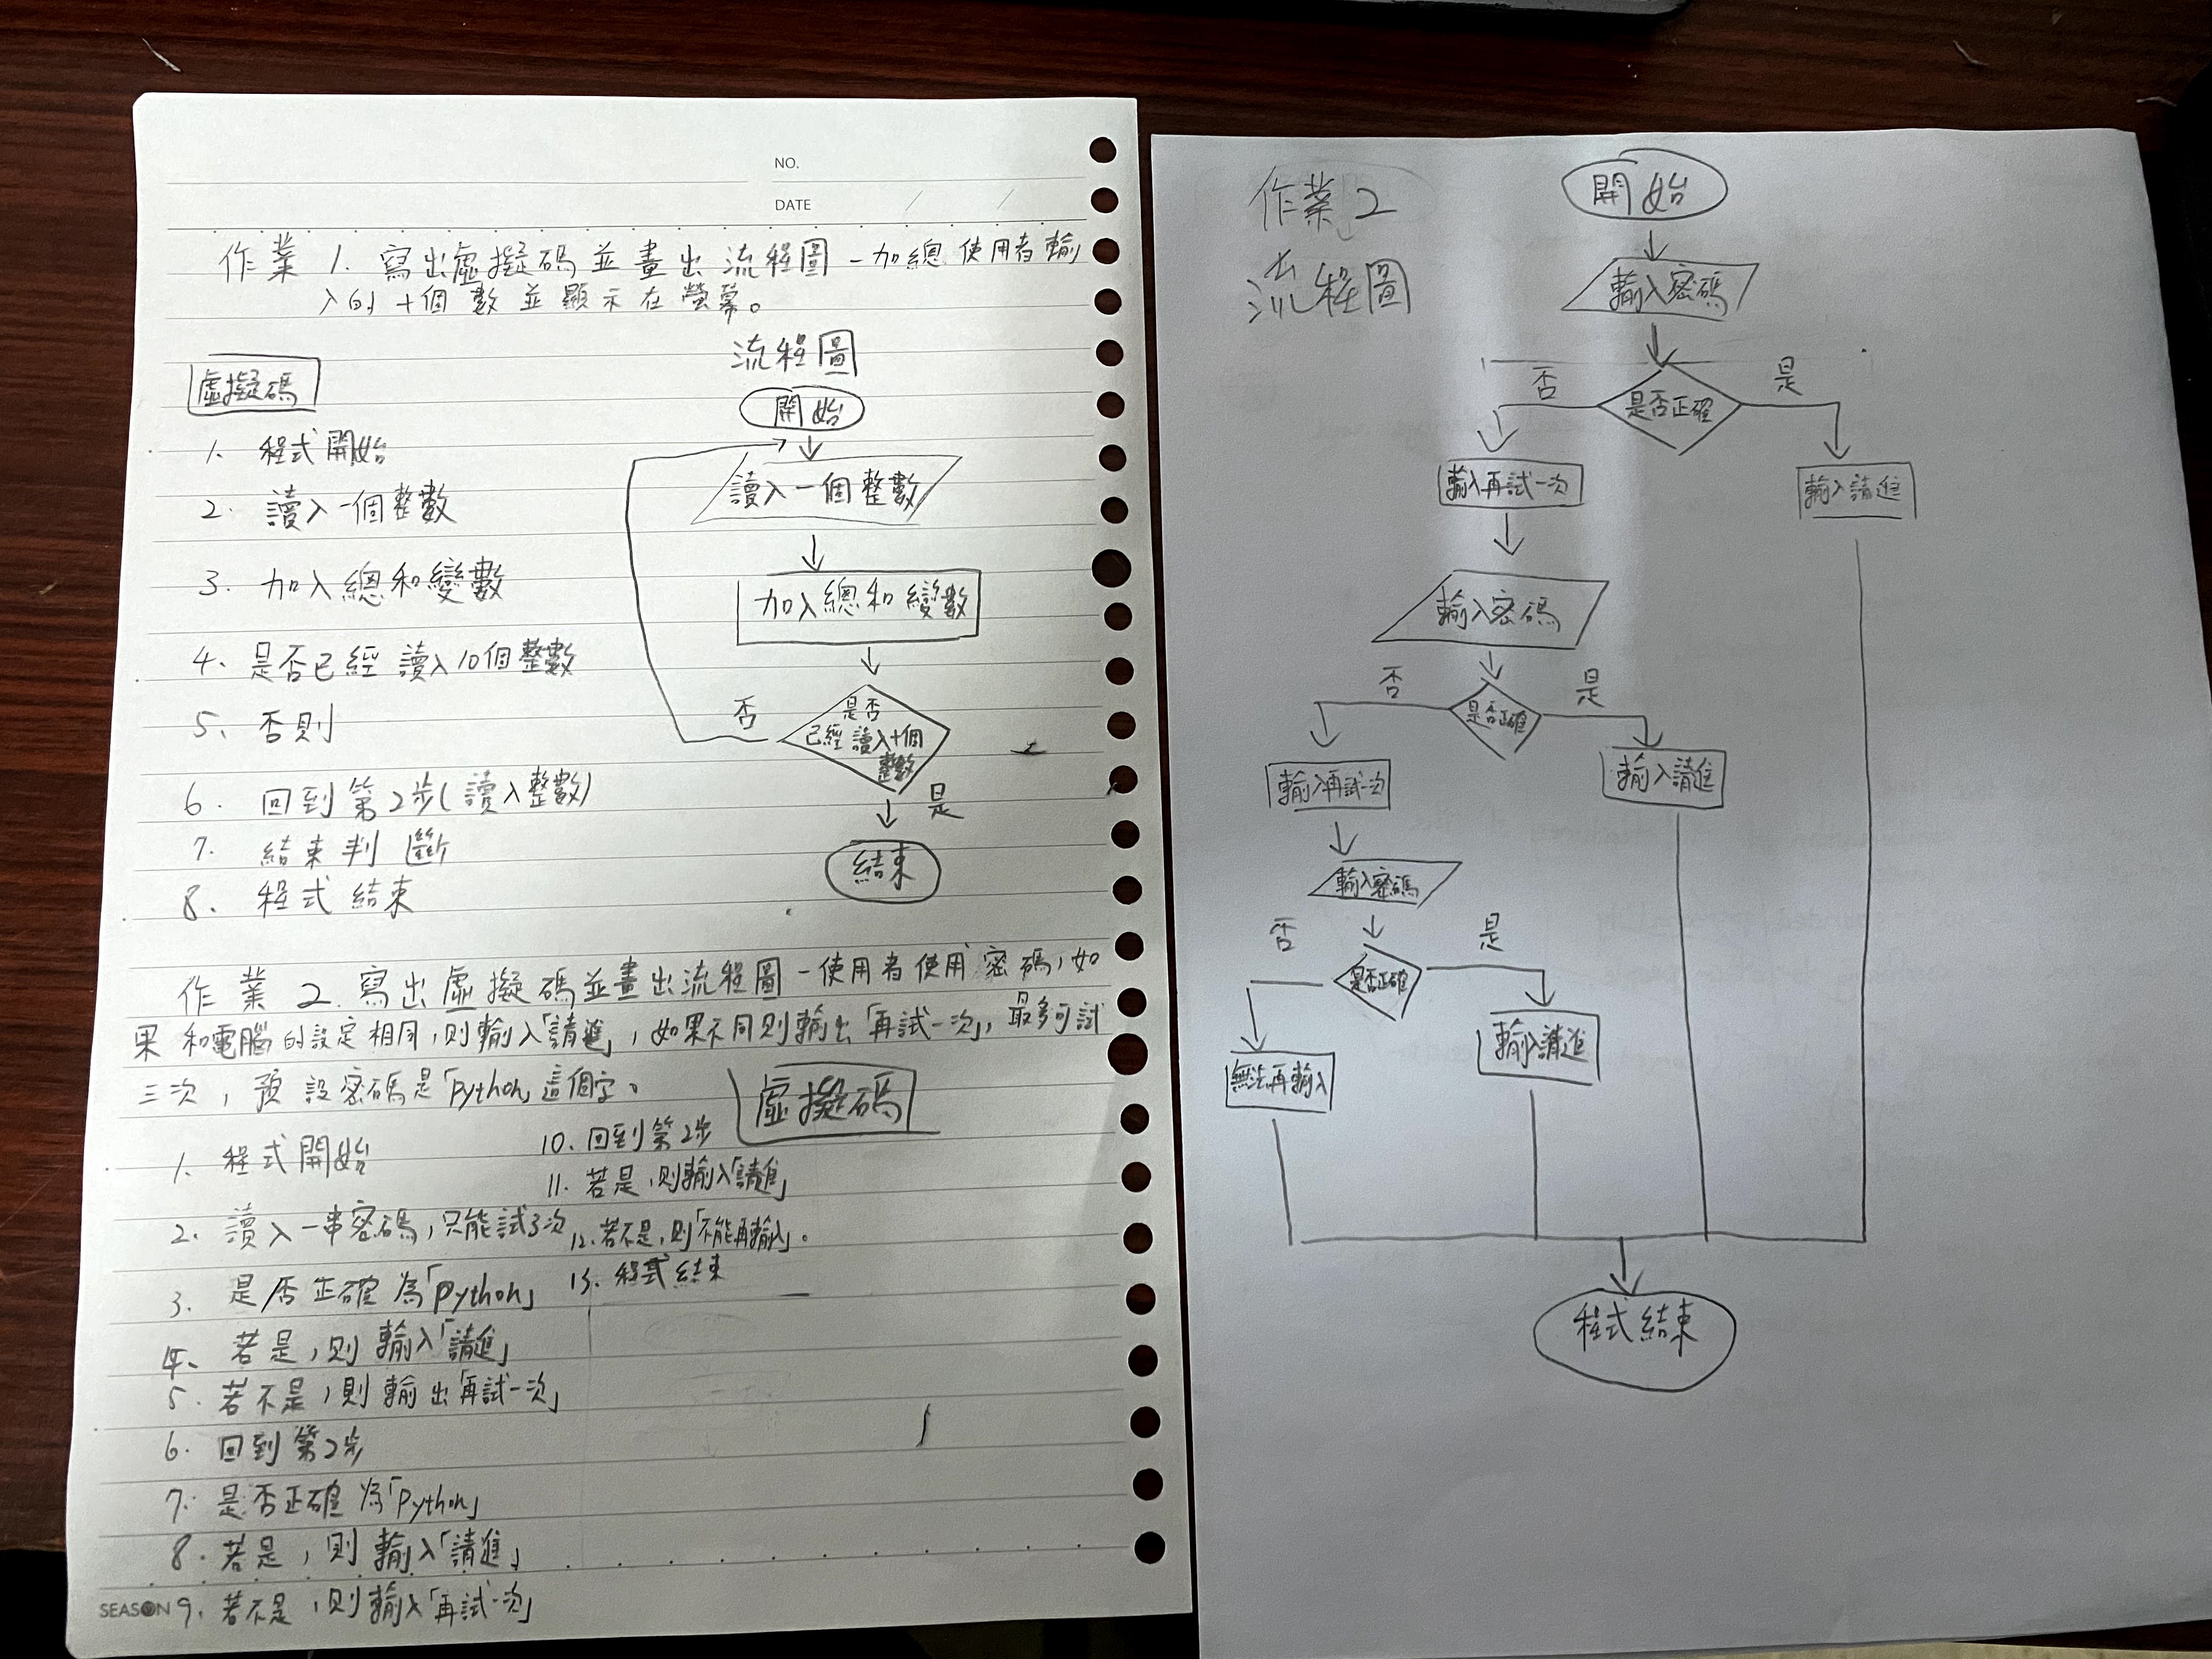 NO.
DATE
作業 1. 寫出虛擬碼並畫出流程圖-加總使用者輸
入的十個數並顯示在螢幕。
虛擬碼
1. 程式開始
2. 讀入一個整數
3. 加入總和變數
4、是否已經讀入10個整數
5、否則
6. 回到第2步(讀入整數)
7. 結束判斷
8. 程式結束
流程圖
開始
讀入一個整數
加入總和變數
是否
已經讀入十個
整數
否
是
結束
作業 2. 寫出虛擬碼並畫出流程圖-使用者使用密碼,如
果和電腦的設定相同,則輸入「請進」,如果不同則輸出「再試一次」,最多可試
三次,預設密碼是「Python」這個字。
虛擬碼
1. 程式開始
2. 讀入一串密碼,只能試3次
3. 是否正確為「Python」
4、若是,則輸入「請進」
5. 若不是,則輸出「再試一次」
6. 回到第2步
7. 是否正確為「Python」
8. 若是,則輸入「請進」
9. 若不是,則輸入「再試一次」
10. 回到第2步
11. 若是,則輸入「請進」
12. 若不是,則「不能再輸入」。
13. 程式結束
SEASON
作業2
流程圖
開始
輸入密碼
否
是否正確
是
輸入再試一次
輸入請進
輸入密碼
否
是否正確
是
輸入再試一次
輸入請進
輸入密碼
否
是否正確
是
無法再輸入
輸入請進
程式結束